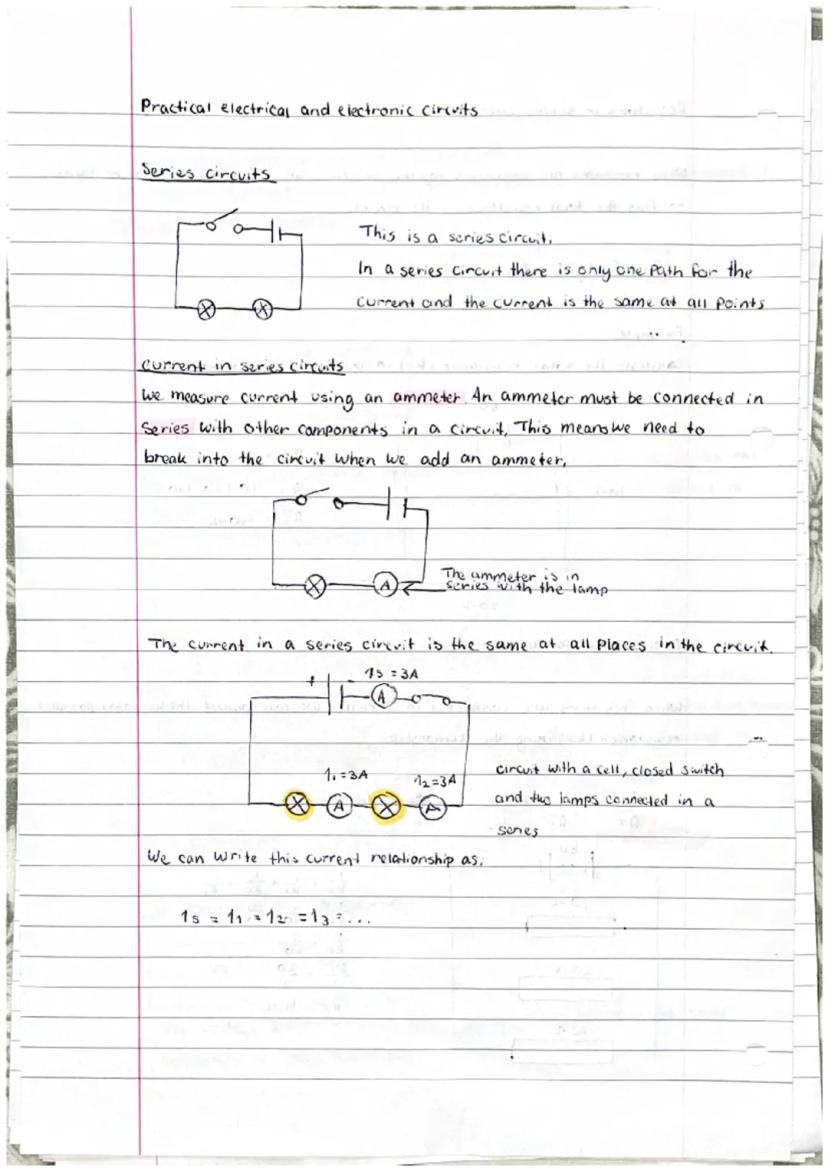 Practical electrical and electronic circuits
Series circuits
This is a series circuit.
In a series circuit there is only one path for the
current and the current is the same at all points
Current in series circuits
We measure current using an ammeter. An ammeter must be connected in
series with other components in a circuit, This means we need to
break into the circuit when we add an ammeter,
A
The ammeter is in
series with the lamp
The current in a series circuit is the same at all places in the circuit.
+ - 1s = 3A
A
1₁ = 3A 1₂ = 3A
A A
circuit with a cell, closed switch
and two lamps connected in a
series
We can write this current relationship as,
1s = 1₁ = 1₂ = 1₃ = ...